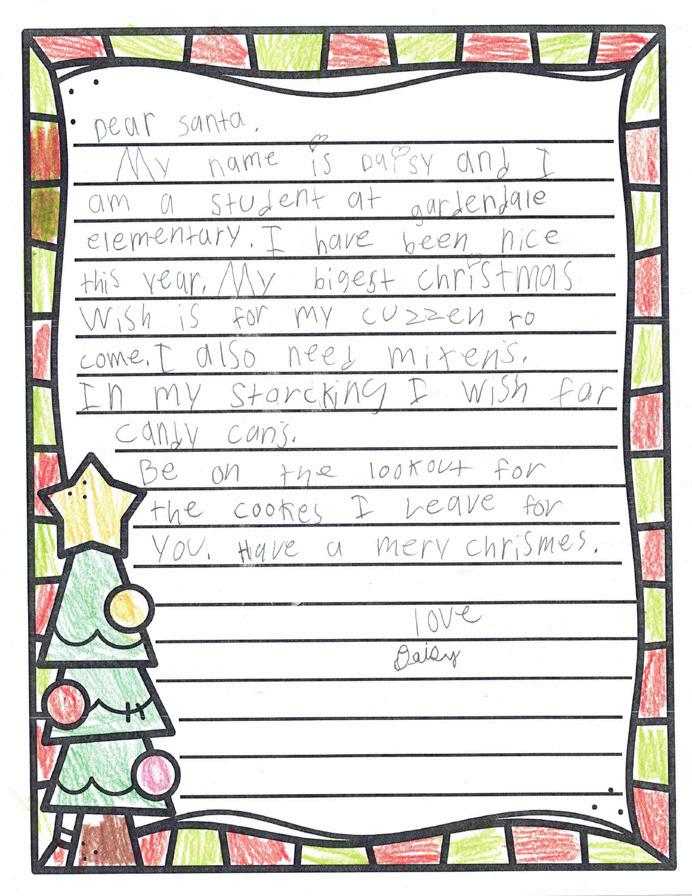 Dear santa,
My name is Daisy and I
am a student at gardendale
elementary. I have been nice
this year. My bigest christmas
Wish is for my cuzzen to
come. I also need mixens.
In my storcking I wish far
candy cans.
Be on the lookout for
the cookes I Leave for
You. Have a mery chrismes.
love
Daisy